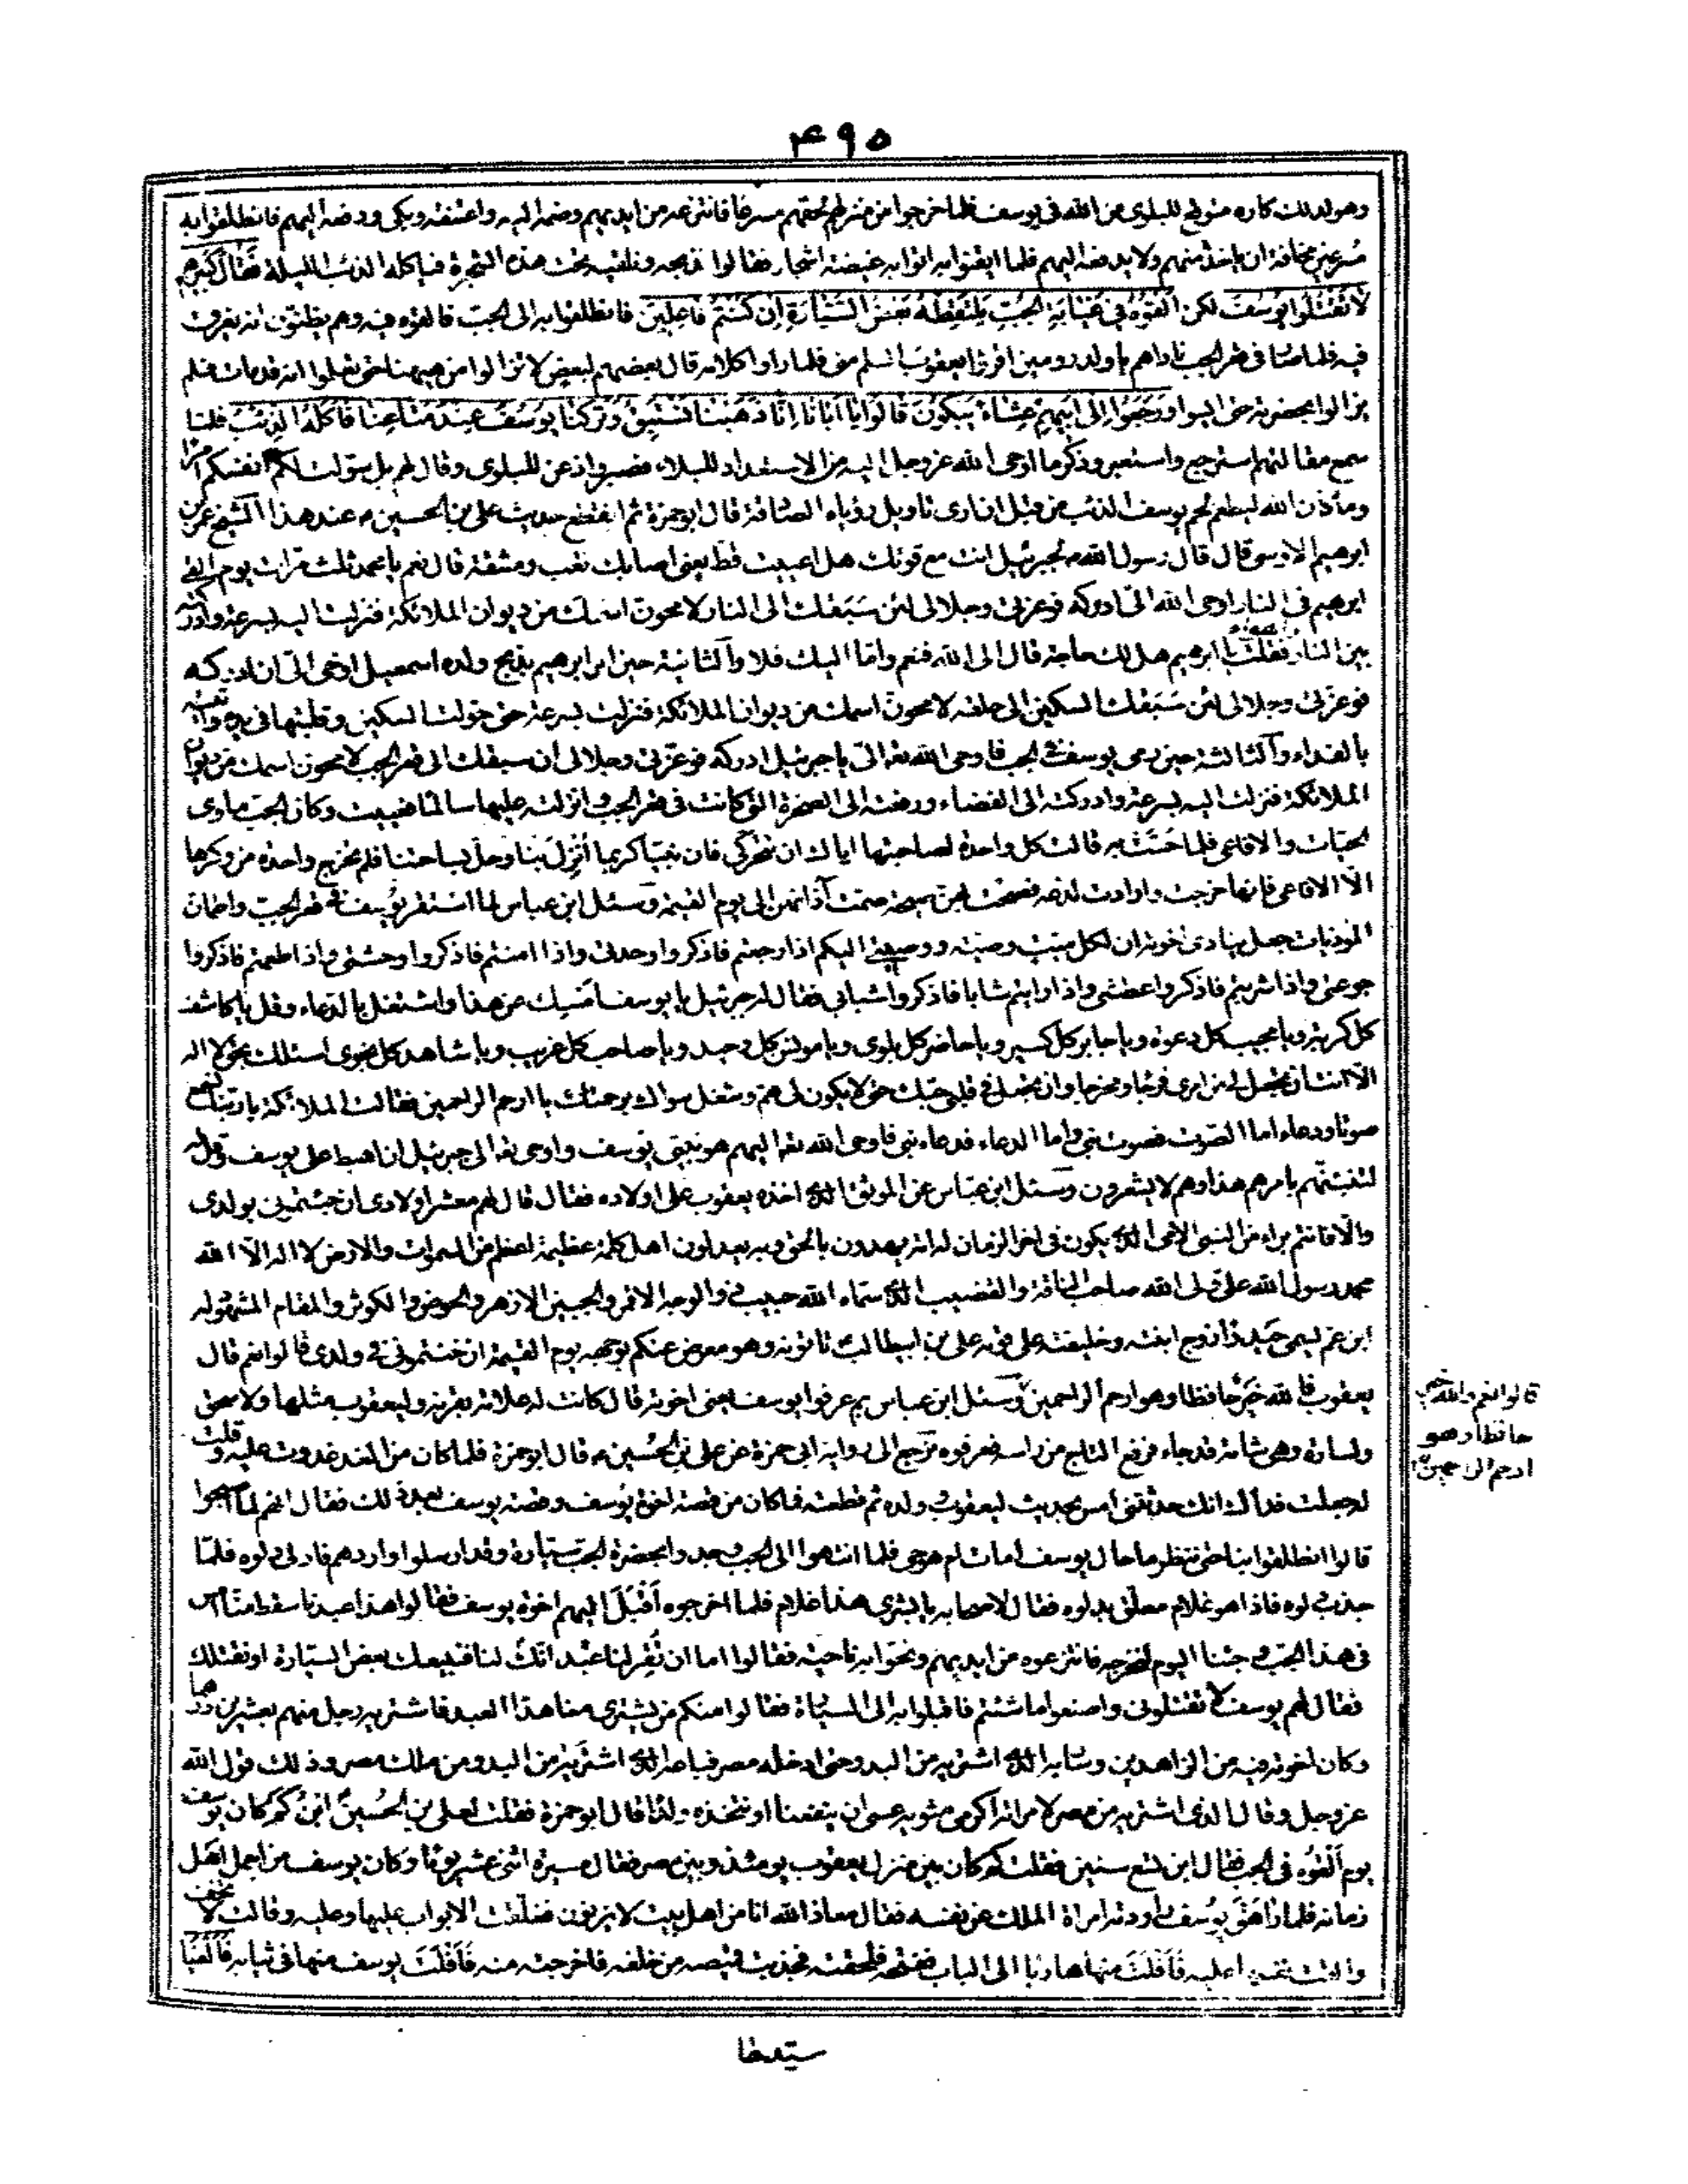 ۴۹۵
وهو لذلك كاره متوقع للبلوى من الله فى يوسف فلما خرجوا من منزلهم لحقهم مسرعا فانتزعه من ايديهم وضمه اليه واعتنقه وبكى ودفعه اليهم فانطلقوا به
مسرعين مخافة ان ياخذه منهم ولا يدفعه اليهم فلما ايقنوا به اتوا به غيضة اشجار فقالوا نذبحه ونلقيه تحت هذه الشجرة فياكله الذئب الليلة فقال كبيرهم
لا تقتلوا يوسف لكن القوه فى غيابة الجب يلتقطه بعض السيارة ان كنتم فاعلين فانطلقوا به الى الجب فالقوه فيه وهم يظنون انه يغرق
فيه فلما صار فى قعر الجب ناداهم يا ولد رومين اقرؤا يعقوب السلم منى فلما راوا كلامه قال بعضهم لبعض لا تزالوا من هيهنا حتى تعلموا انه قد مات فلم
يزالوا بحضرته حتى ايسوا ورجعوا الى ابيهم عشاء يبكون قالوا يا ابانا انا ذهبنا نستبق وتركنا يوسف عند متاعنا فاكله الذئب فلما
سمع مقالتهم استرجع واستعبر وذكر ما اوحى الله عز وجل اليه من الاستعداد للبلاء فصبر واذعن للبلوى وقال لهم بل سولت لكم انفسكم امرا
وما ذن الله ليطعم لحم يوسف الذئب من قبل ان ارى تاويل رؤياه الصادقة قال ابو حمزة ثم انقطع حديث على بن الحسين عند هذا الشيخ عمر بن
ابرهيم الاوسى قال قال رسول الله لجبرئيل انت مع قوتك هل اعييت قط يعنى اصابك تعب ومشقة قال نعم يا محمد ثلث مرات يوم القى
ابرهيم فى النار اوحى الله الى ادركه فوعزتى وجلالى لئن سبقك الى النار لامحون اسمك من ديوان الملائكة فنزلت اليه بسرعة وادركته
بين النار فقلت يا ابرهيم هل لك حاجة قال الى الله فنعم واما اليك فلا والثانية حين امر ابرهيم بذبح ولده اسمعيل اوحى الى ان ادركه
فوعزتى وجلالى لئن سبقك السكين الى حلقه لامحون اسمك من ديوان الملائكة فنزلت بسرعة حتى حولت السكين وقلبتها فى يده واتيته
بالفداء والثالثة حين رمى يوسف فى الجب فاوحى الله تعالى الى يا جبرئيل ادركه فوعزتى وجلالى ان سبقك الى قعر الجب لامحون اسمك من ديوان
الملائكة فنزلت اليه بسرعة وادركته الى الفضاء ورفعته الى الصخرة التى كانت فى قعر الجب وانزلته عليها سالما فعييت وكان الجب ماوى
الحيات والافاعى فلما حست به قالت كل واحدة لصاحبتها اياك ان تتحركى فان نبيا كريما انزل بنا وحل بساحتنا فلم تخرج واحدة من وكرها
الا الافاعى فانها خرجت وارادت لدغه فصحت بهن صيحة صمت آذانهن الى يوم القيمة وسئل ابن عباس لما استقر يوسف فى قعر الجب واطمان
الموذيات جعل ينادى اخوته ان لكل ميت وصية ووصيتى اليكم اذا رجعتم فاذكروا وحدتى واذا امنتم فاذكروا وحشتى واذا طعمتم فاذكروا
جوعتى واذا شربتم فاذكروا عطشى واذا رايتم شابا فاذكروا شبابى فقال له جبرئيل يا يوسف امسك عن هذا واشتغل بالدعاء وقل يا كاشف
كل كربة ويا مجيب كل دعوة ويا جابر كل كسير ويا حاضر كل بلوى ويا مونس كل وحيد ويا صاحب كل غريب ويا شاهد كل نجوى اسئلك بحق لا اله
الا انت ان تجعل لى من امرى فرجا ومخرجا وان تجعل فى قلبى حبك حتى لا يكون لى هم وشغل سواك برحمتك يا ارحم الراحمين فقالت الملائكة يا ربنا نسمع
صوتا ودعاء اما الصوت فصوت نبى واما الدعاء فدعاء نبى فاوحى الله تعالى اليهم هو نبيى يوسف واوحى تعالى الى جبرئيل ان اهبط على يوسف وقل له
لتنبئنهم بامرهم هذا وهم لا يشعرون وسئل ابن عباس عن الموثق الذى اخذه يعقوب على اولاده فقال قال لهم معشر اولادى ان جئتمونى بولدى
والا فانتم براء من النبى الامى الذى يكون فى اخر الزمان له امة يهدون بالحق وبه يعدلون اهل كلمة عظيمة اعظم من السموات والارض لا اله الا الله
محمد رسول الله على ولى الله صاحب الناقة والقضيب الذى سماه الله حبيب ذو الوجه الاقمر والجبين الازهر والحوض والكوثر والمقام المشهود له
ابن عم يسمى حيدرا زوج ابنته وخليفته على قومه على بن ابيطالب تاتونه وهو معرض عنكم بوجهه يوم القيمة ان خنتمونى فى ولدى قالوا نعم قال
يعقوب فالله خير حافظا وهو ارحم الراحمين وسئل ابن عباس بم عرفوا يوسف يعنى اخوته قال كانت له علامة بقرنه وليعقوب مثلها ولاسحق
ولسارة وهى شامة قد جاء فرفع التاج من راسه فعرفوه نرجع الى رواية ابى حمزة عن على بن الحسين قال ابو حمزة فلما كان من الغد غدوت عليه وقلت
له جعلت فداك انك حدثتنى امس بحديث ليعقوب وولده ثم قطعته فما كان من قصة اخوة يوسف وقصة يوسف بعد ذلك فقال انهم لما اصبحوا
قالوا انطلقوا بنا حتى ننظر ما حال يوسف امات ام هو حى فلما انتهوا الى الجب وجدوا بحضرة الجب سيارة وقد ارسلوا واردهم فادلى دلوه فلما
جذب دلوه فاذا هو غلام معلق بدلوه فقال لاصحابه يا بشرى هذا غلام فلما اخرجوه اقبل اليهم اخوة يوسف فقالوا هذا عبدنا سقط منا امس
فى هذا الجب وجئنا اليوم لنخرجه فانتزعوه من ايديهم ونحوا به ناحية فقالوا اما ان تقر لنا عبد انك لنا فنبيعك بعض السيارة او نقتلك
فقال لهم يوسف لا تقتلونى واصنعوا ما شئتم فاقبلوا به الى السيارة فقالوا منكم من يشترى منا هذا العبد فاشتريه رجل منهم بعشرين درهما
وكان اخوته فيه من الزاهدين وسار به الذى اشتريه من البدو حتى ادخله مصر فباعه الذى اشتريه من البدو من ملك مصر وذلك قول الله
عز وجل وقال الذى اشتريه من مصر لامراته اكرمى مثويه عسى ان ينفعنا او نتخذه ولدا قال ابو حمزة فقلت لعلى بن الحسين ابن كم كان يوسف
يوم القوه فى الجب فقال ابن تسع سنين فقلت كم كان بين منزل يعقوب يومئذ وبين مصر فقال مسيرة اثنى عشر يوما وكان يوسف من اجمل اهل
زمانه فلما راهق يوسف راودته امراة الملك عن نفسه فقال معاذ الله انا من اهل بيت لا يزنون فغلقت الابواب عليها وعليه وقالت لا تخف
والقت نفسها عليه فافلت منها هاربا الى الباب ففتحه فلحقته فجذبت قميصه من خلفه فاخرجته منه فافلت يوسف منها فى ثيابه فالفيا
قالوا نعم والله خير
حافظا وهو
ارحم الراحمين
سيدها